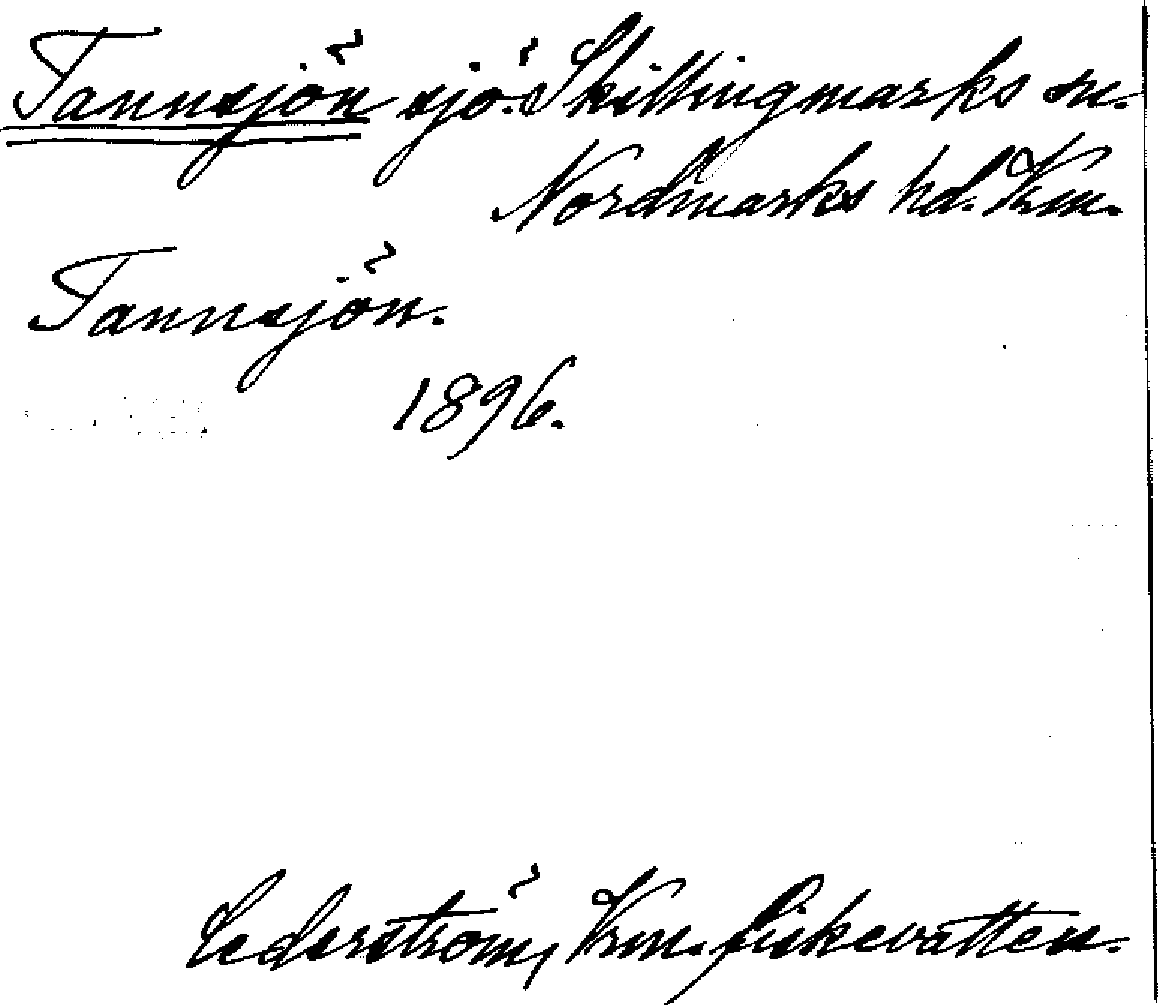 Tannsjön sjö. Skillingmarks sn.
Nordmarks hd. Vrm.
Tannsjön.
1896.
Cederström, Vrm. fiskevatten.